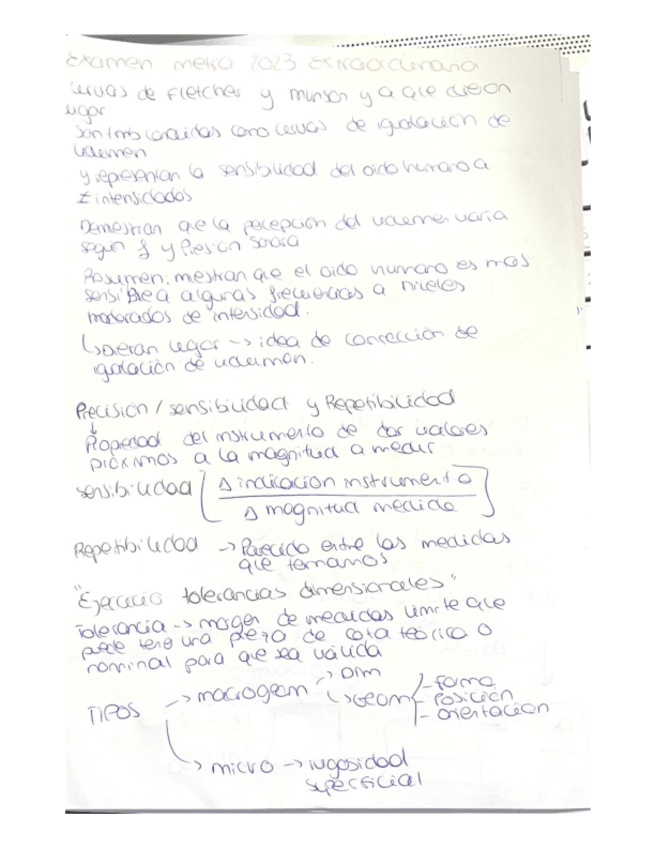 Examen metro 2023 Extraordinaria
curvas de Fletcher y munson y a que dieron
lugar
son tmb conocidas como curvas de igualación de
volumen
y representan la sensibilidad del oido humano a
≠ intensidades
Demestran que la percepción del volumen varia
según f y Presión Sonora
Resumen: mestran que el oido humano es mas
sensible a algunas frecuencias a niveles
moderados de intensidad.
↳ dieran lugar → idea de corrección de
igualación de volumen.
Precisión / sensibilidad y Repetibilidad
↓
Propiedad del instrumento de dar valores
próximos a la magnitud a medir
sensibilidad [ Δ indicación instrumento
Δ magnitud medida ]
Repetibilidad → Parecido entre las medidas
que tomamos
"Ejercicio tolerancias dimensionales"
Tolerancia → margen de medidas limite que
puede tener una pieza de cota teórica o
nominal para que sea válida
TIPOS → macrogeom → DIM
↳ Geom - forma
- Posición
- orientacion
↳ micro → rugosidad
superficial